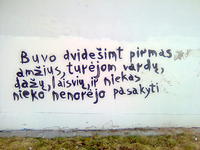 Buvo dvidešimt pirmas
amžius, turėjom vardų,
dažų, laisvių, ir niekas
nieko nenorėjo pasakyti